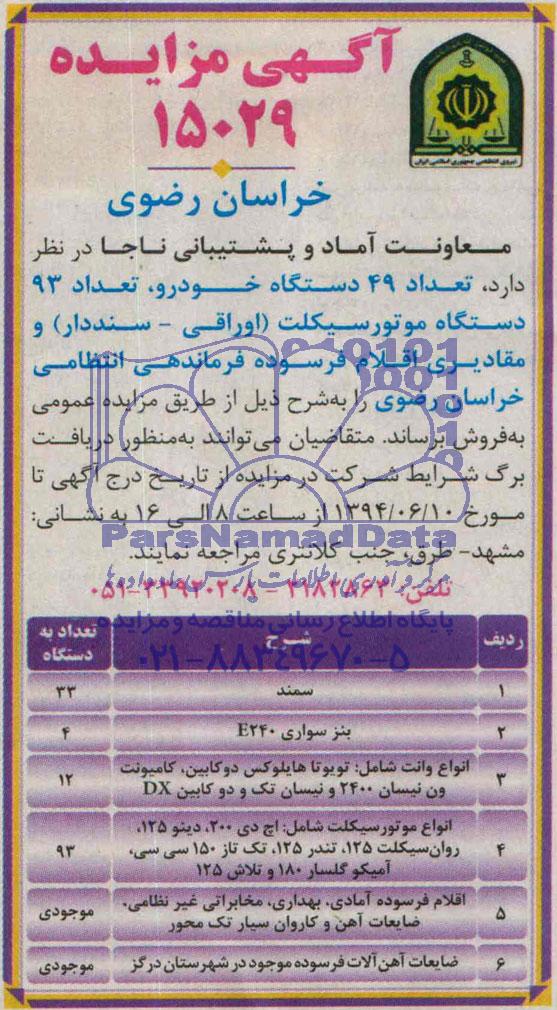 آگهی مزایده
۱۵۰۲۹
نیروی انتظامی جمهوری اسلامی ایران
خراسان رضوی
معاونت آماد و پشتیبانی ناجا در نظر
دارد، تعداد ۴۹ دستگاه خودرو، تعداد ۹۳
دستگاه موتورسیکلت (اوراقی - سنددار) و
مقادیری اقلام فرسوده فرماندهی انتظامی
خراسان رضوی را به‌شرح ذیل از طریق مزایده عمومی
به‌فروش برساند. متقاضیان می‌توانند به‌منظور دریافت
برگ شرایط شرکت در مزایده از تاریخ درج آگهی تا
مورخ ۱۳۹۴/۰۶/۱۰ از ساعت ۸ الی ۱۶ به نشانی:
ParsNamadData
مشهد- طرق، جنب کلانتری مراجعه نمایند.
تلفن:
پایگاه اطلاع رسانی مناقصه و مزایده
۰۲۱-۸۸۳۴۹۶۷۰-۵
ردیف شرح تعداد به دستگاه
۱ سمند ۳۳
۲ بنز سواری E۲۴۰ ۴
۳ انواع وانت شامل: تویوتا هایلوکس دوکابین، کامیونت
ون نیسان ۲۴۰۰ و نیسان تک و دو کابین DX ۱۲
۴ انواع موتورسیکلت شامل: اچ دی ۲۰۰، دینو ۱۲۵،
روان‌سیکلت ۱۲۵، تندر ۱۲۵، تک تاز ۱۵۰ سی سی، ۹۳
آمیکو گلسار ۱۸۰ و تلاش ۱۲۵
۵ اقلام فرسوده آمادی، بهداری، مخابراتی غیر نظامی، موجودی
ضایعات آهن و کاروان سیار تک محور
۶ ضایعات آهن‌آلات فرسوده موجود در شهرستان درگز موجودی